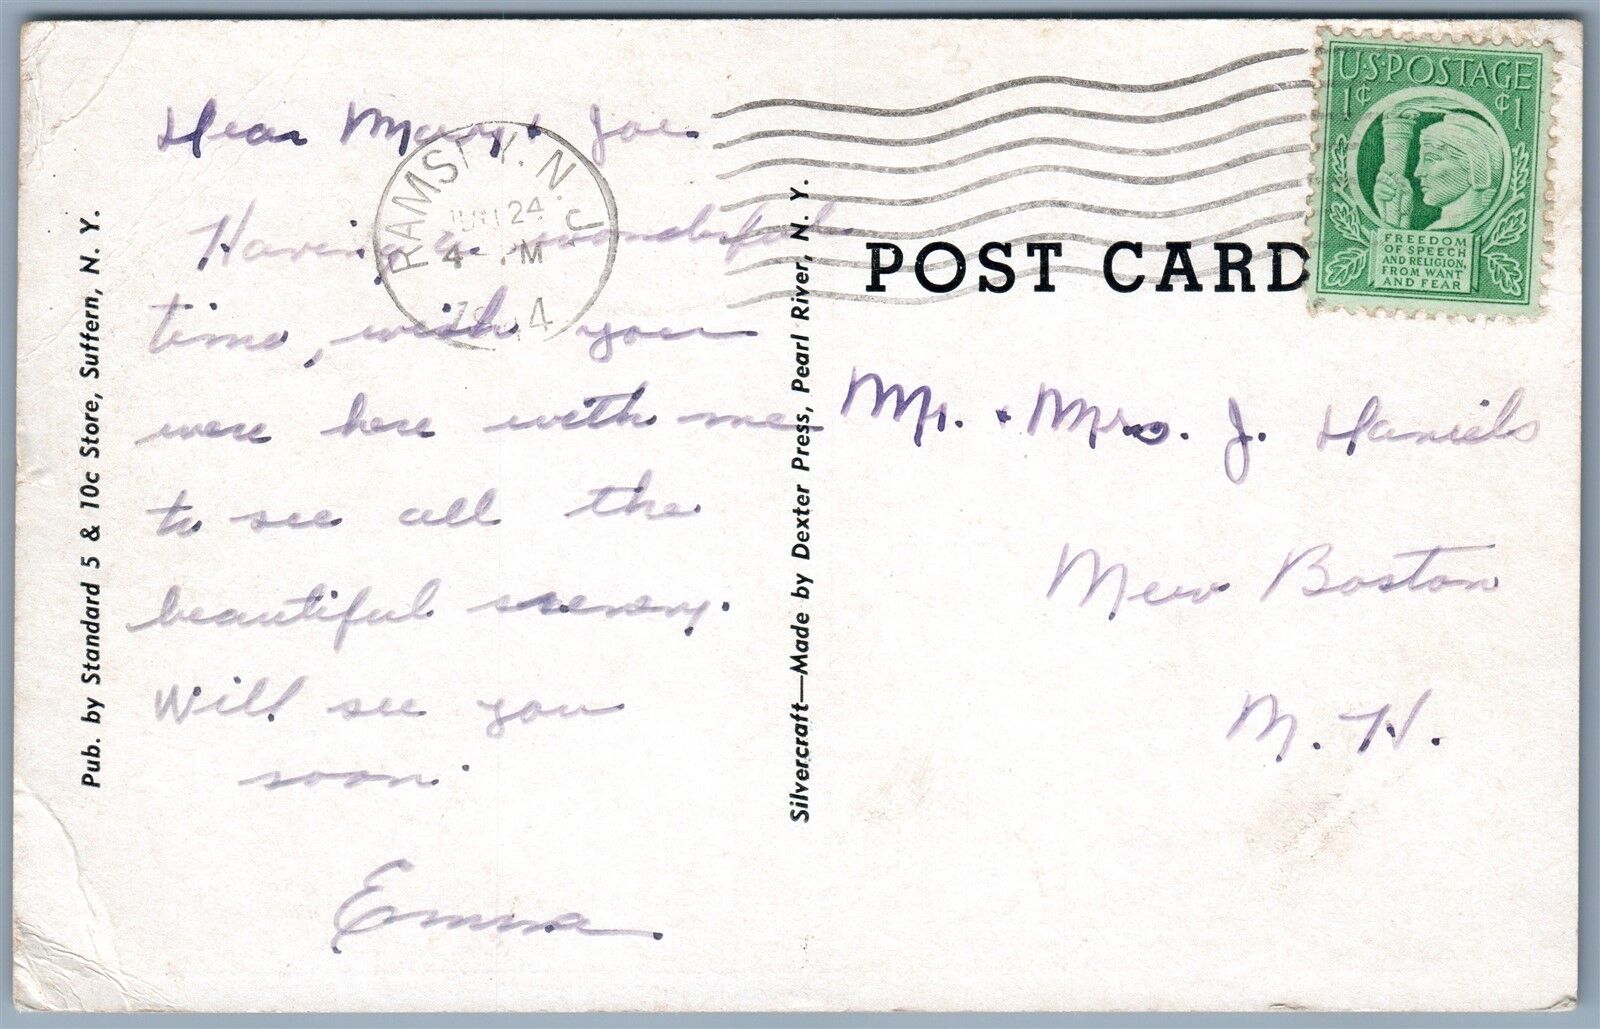 Pub. by Standard 5 & 10c Store, Suffern, N. Y.
Dear Mary & Joe.
Having a wonderful
time, wish you
were here with me
to see all the
beautiful scenery.
Will see you
soon.
Emma.
RAMSEY, N.J.
JUN 24
4 PM
Silvercraft—Made by Dexter Press, Pearl River, N. Y.
POST CARD
U.S. POSTAGE
1¢ ¢1
FREEDOM
OF SPEECH
AND RELIGION,
FROM WANT
AND FEAR
Mr. & Mrs. J. Daniels
New Boston
N. H.